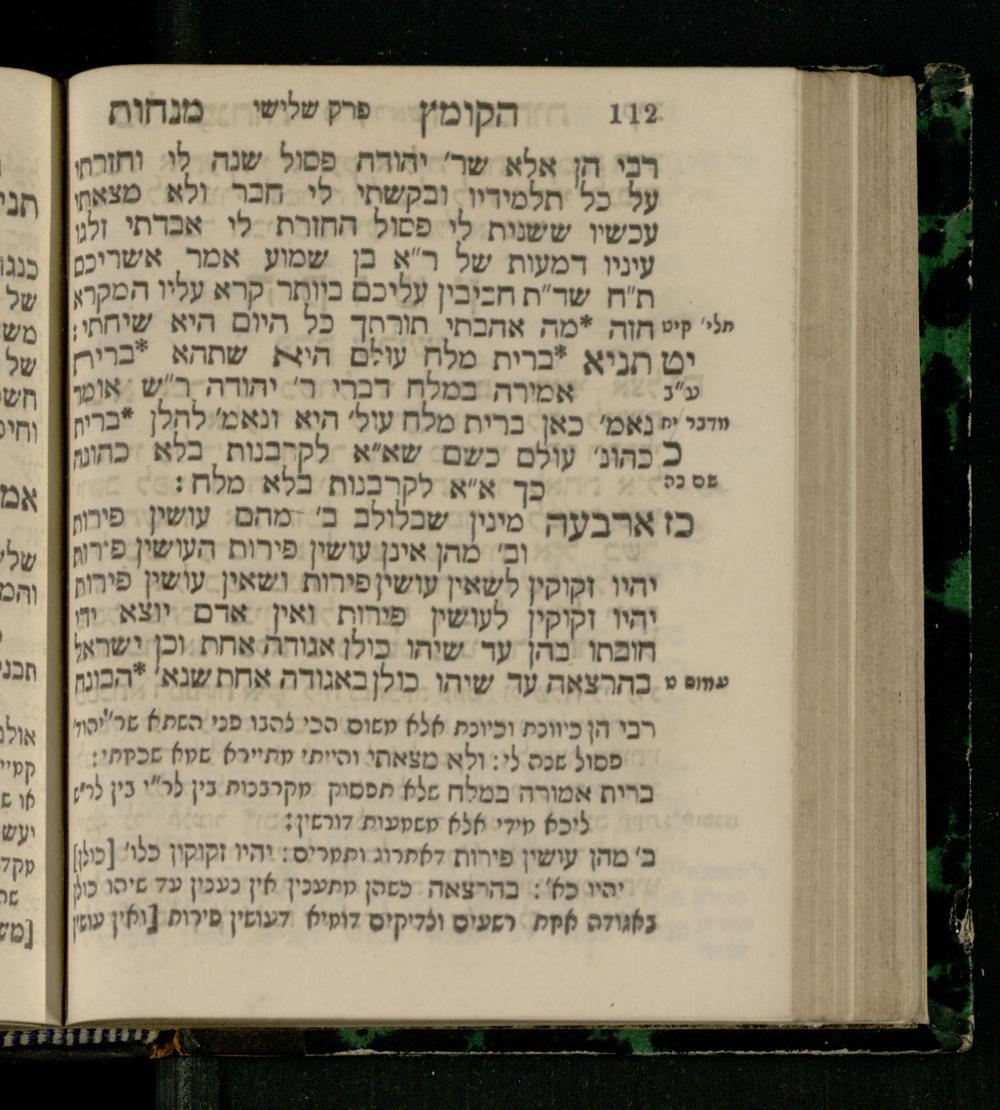 112 הקומץ פרק שלישי מנחות
רבי הן אלא שר׳ יהודה פסול שנה לו וחזרתי
על כל תלמידיו ובקשתי לי חבר ולא מצאתי
עכשיו ששנית לי פסול החזרת לי אבדתי זלגו
עיניו דמעות של ר״א בן שמוע אמר אשריכם
ת״ח שד״ת חביבין עליכם ביותר קרא עליו המקרא
תלי׳ קיט הזה *מה אהבתי תורתך כל היום היא שיחתי:
יט תניא *ברית מלח עולם היא שתהא *ברית
ע״ב אמירה במלח דברי ר׳ יהודה ר״ש אומר
מדבר יח נאמ׳ כאן ברית מלח עול׳ היא ונאמ׳ להלן *ברית
כ כהונ׳ עולם כשם שא״א לקרבנות בלא כהונה
שם כה כך א״א לקרבנות בלא מלח:
כז ארבעה מינין שבלולב ב׳ מהם עושין פירות
וב׳ מהן אינן עושין פירות העושין פירות
יהיו זקוקין לשאין עושין פירות ושאין עושין פירות
יהיו זקוקין לעושין פירות ואין אדם יוצא ידי
חובתו בהן עד שיהו כולן אגודה אחת וכן ישראל
עמוס ט בהרצאה עד שיהו כולן באגודה אחת שנא׳ *הבונה
רבי הן כיוונת וכיונת אלא משום הכי זלגו פני השתא שר״יהוד׳
פסול שנה לי: ולא מצאתי והייתי מתיירא שמא שכחתי:
ברית אמורה במלח שלא תפסוק מקרבנות בין לר״י בין לר״ש
ליכא מידי אלא משמעות דורשין:
ב׳ מהן עושין פירות דאתרוג ותמרים: יהיו זקוקין כלו׳ [כולן]
יהיו כא׳: בהרצאה כשהן מתענין אין נענין עד שיהו כולן
באגודה אחת רשעים וצדיקים דומיא דעושין פירות [ואין עושין